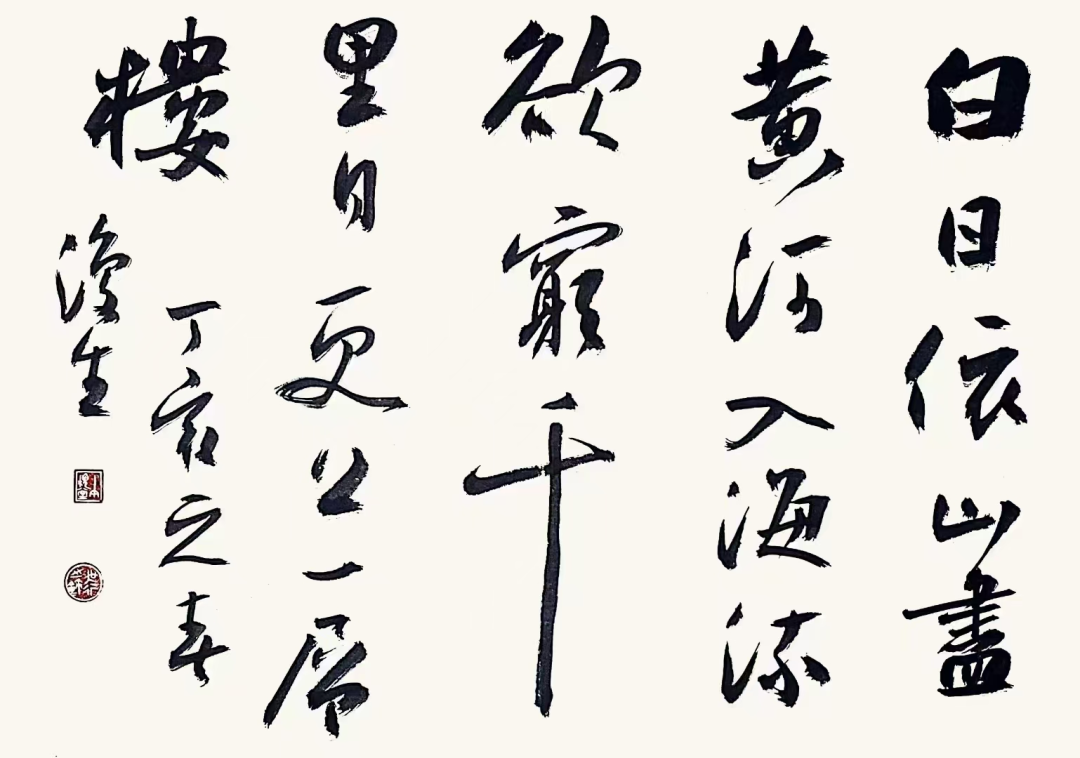 白日依山盡
黄河入海流
欲窮千
里目更上一層
樓
丁亥之春
生